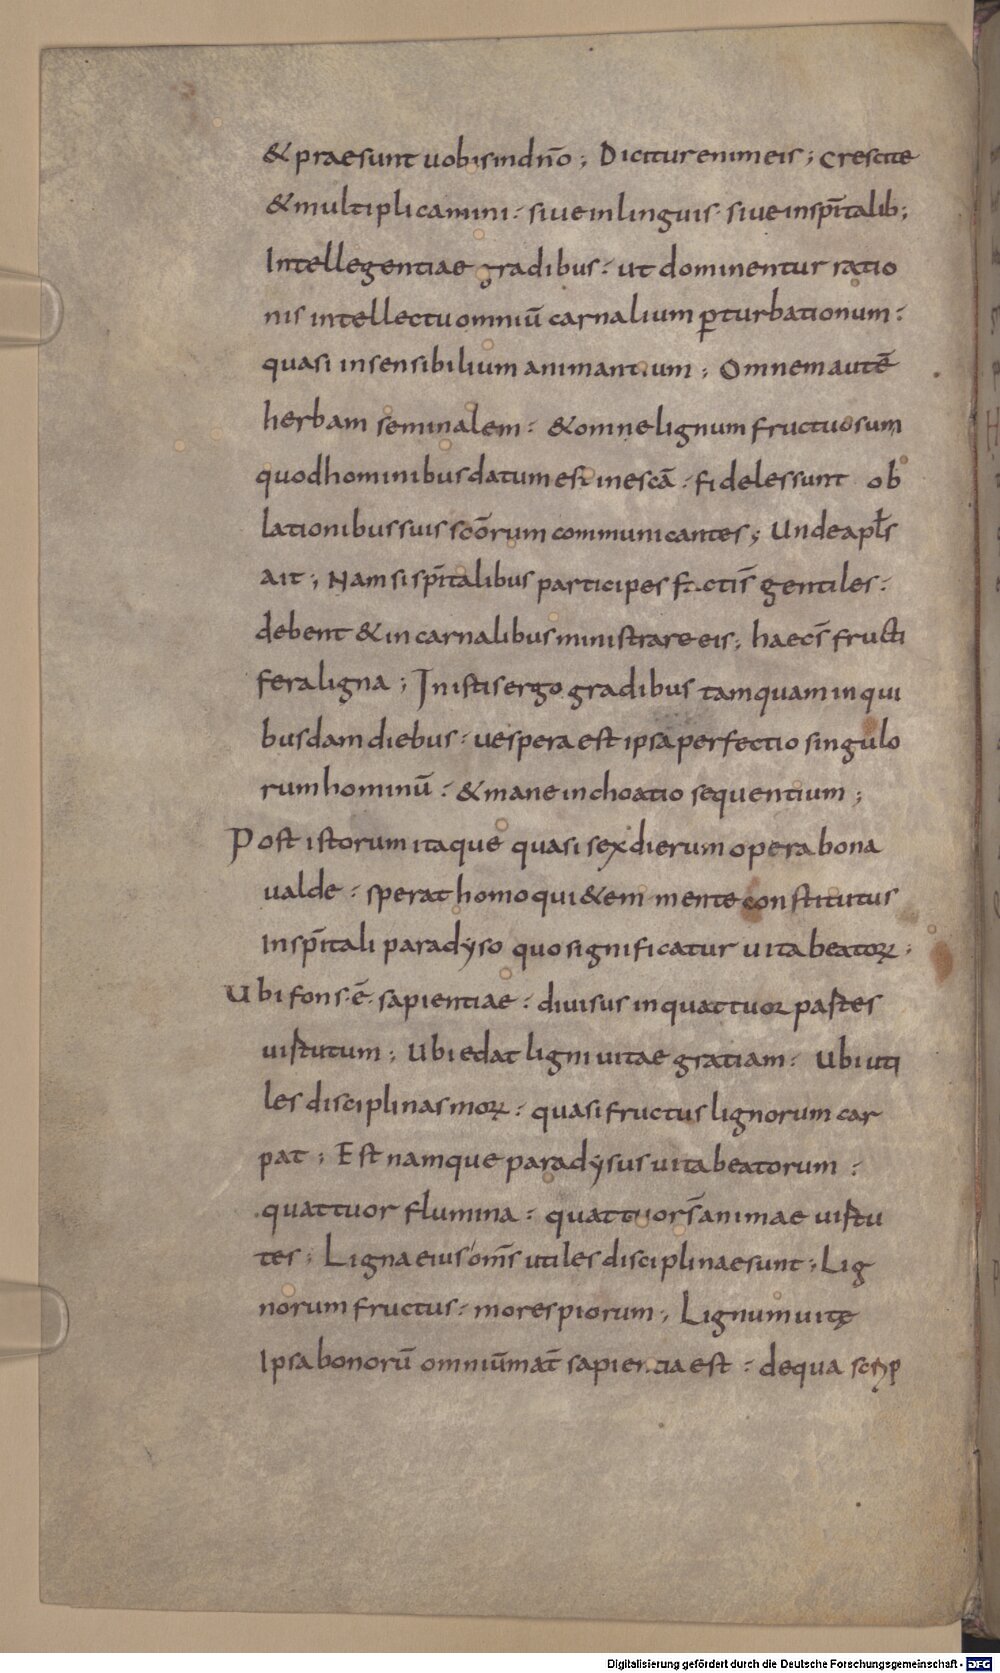 & praesunt uobis in dn̄o ; Dicitur enim eis ; crescite
& multiplicamini : siue in linguis · siue in sp̄italib;
Intellegentiae gradibus : ut dominentur ratio
nis intellectu omniū carnalium ꝑturbationum :
quasi insensibilium animantium ; Omnem autē
herbam seminalem : & omne lignum fructuosum
quod hominibus datum est in escā : fideles sunt ob
lationibus suis sc̄orum communicantes ; Unde apl̄s
ait ; Nam si sp̄italibus participes facti s̄ gentiles :
debent & in carnalibus ministrare eis ; haec s̄ fructi
fera ligna ; In istis ergo gradibus tamquam in qui
busdam diebus : uespera est ipsa perfectio singulo
rum hominū : & mane inchoatio sequentium ;
Post istorum itaque quasi sex dierum opera bona
ualde : sperat homo qui&em mente constitutus
In sp̄itali paradẏso quo significatur uita beatoꝝ ·
Ubi fons · ē · sapientiae : diuisus in quattuor partes
uirtutum ; Ubi edat ligni uitae gratiam : Ubi uti
les disciplinas moꝝ : quasi fructus lignorum car
pat ; Est namque paradẏsus uita beatorum :
quattuor flumina : quattuor s̄ animae uirtu
tes ; Ligna eius om̄s utiles disciplinae sunt ; Lig
norum fructus : mores piorum ; Lignum uitę
Ipsa bonorū omniū mat̄ sapientia est : de qua